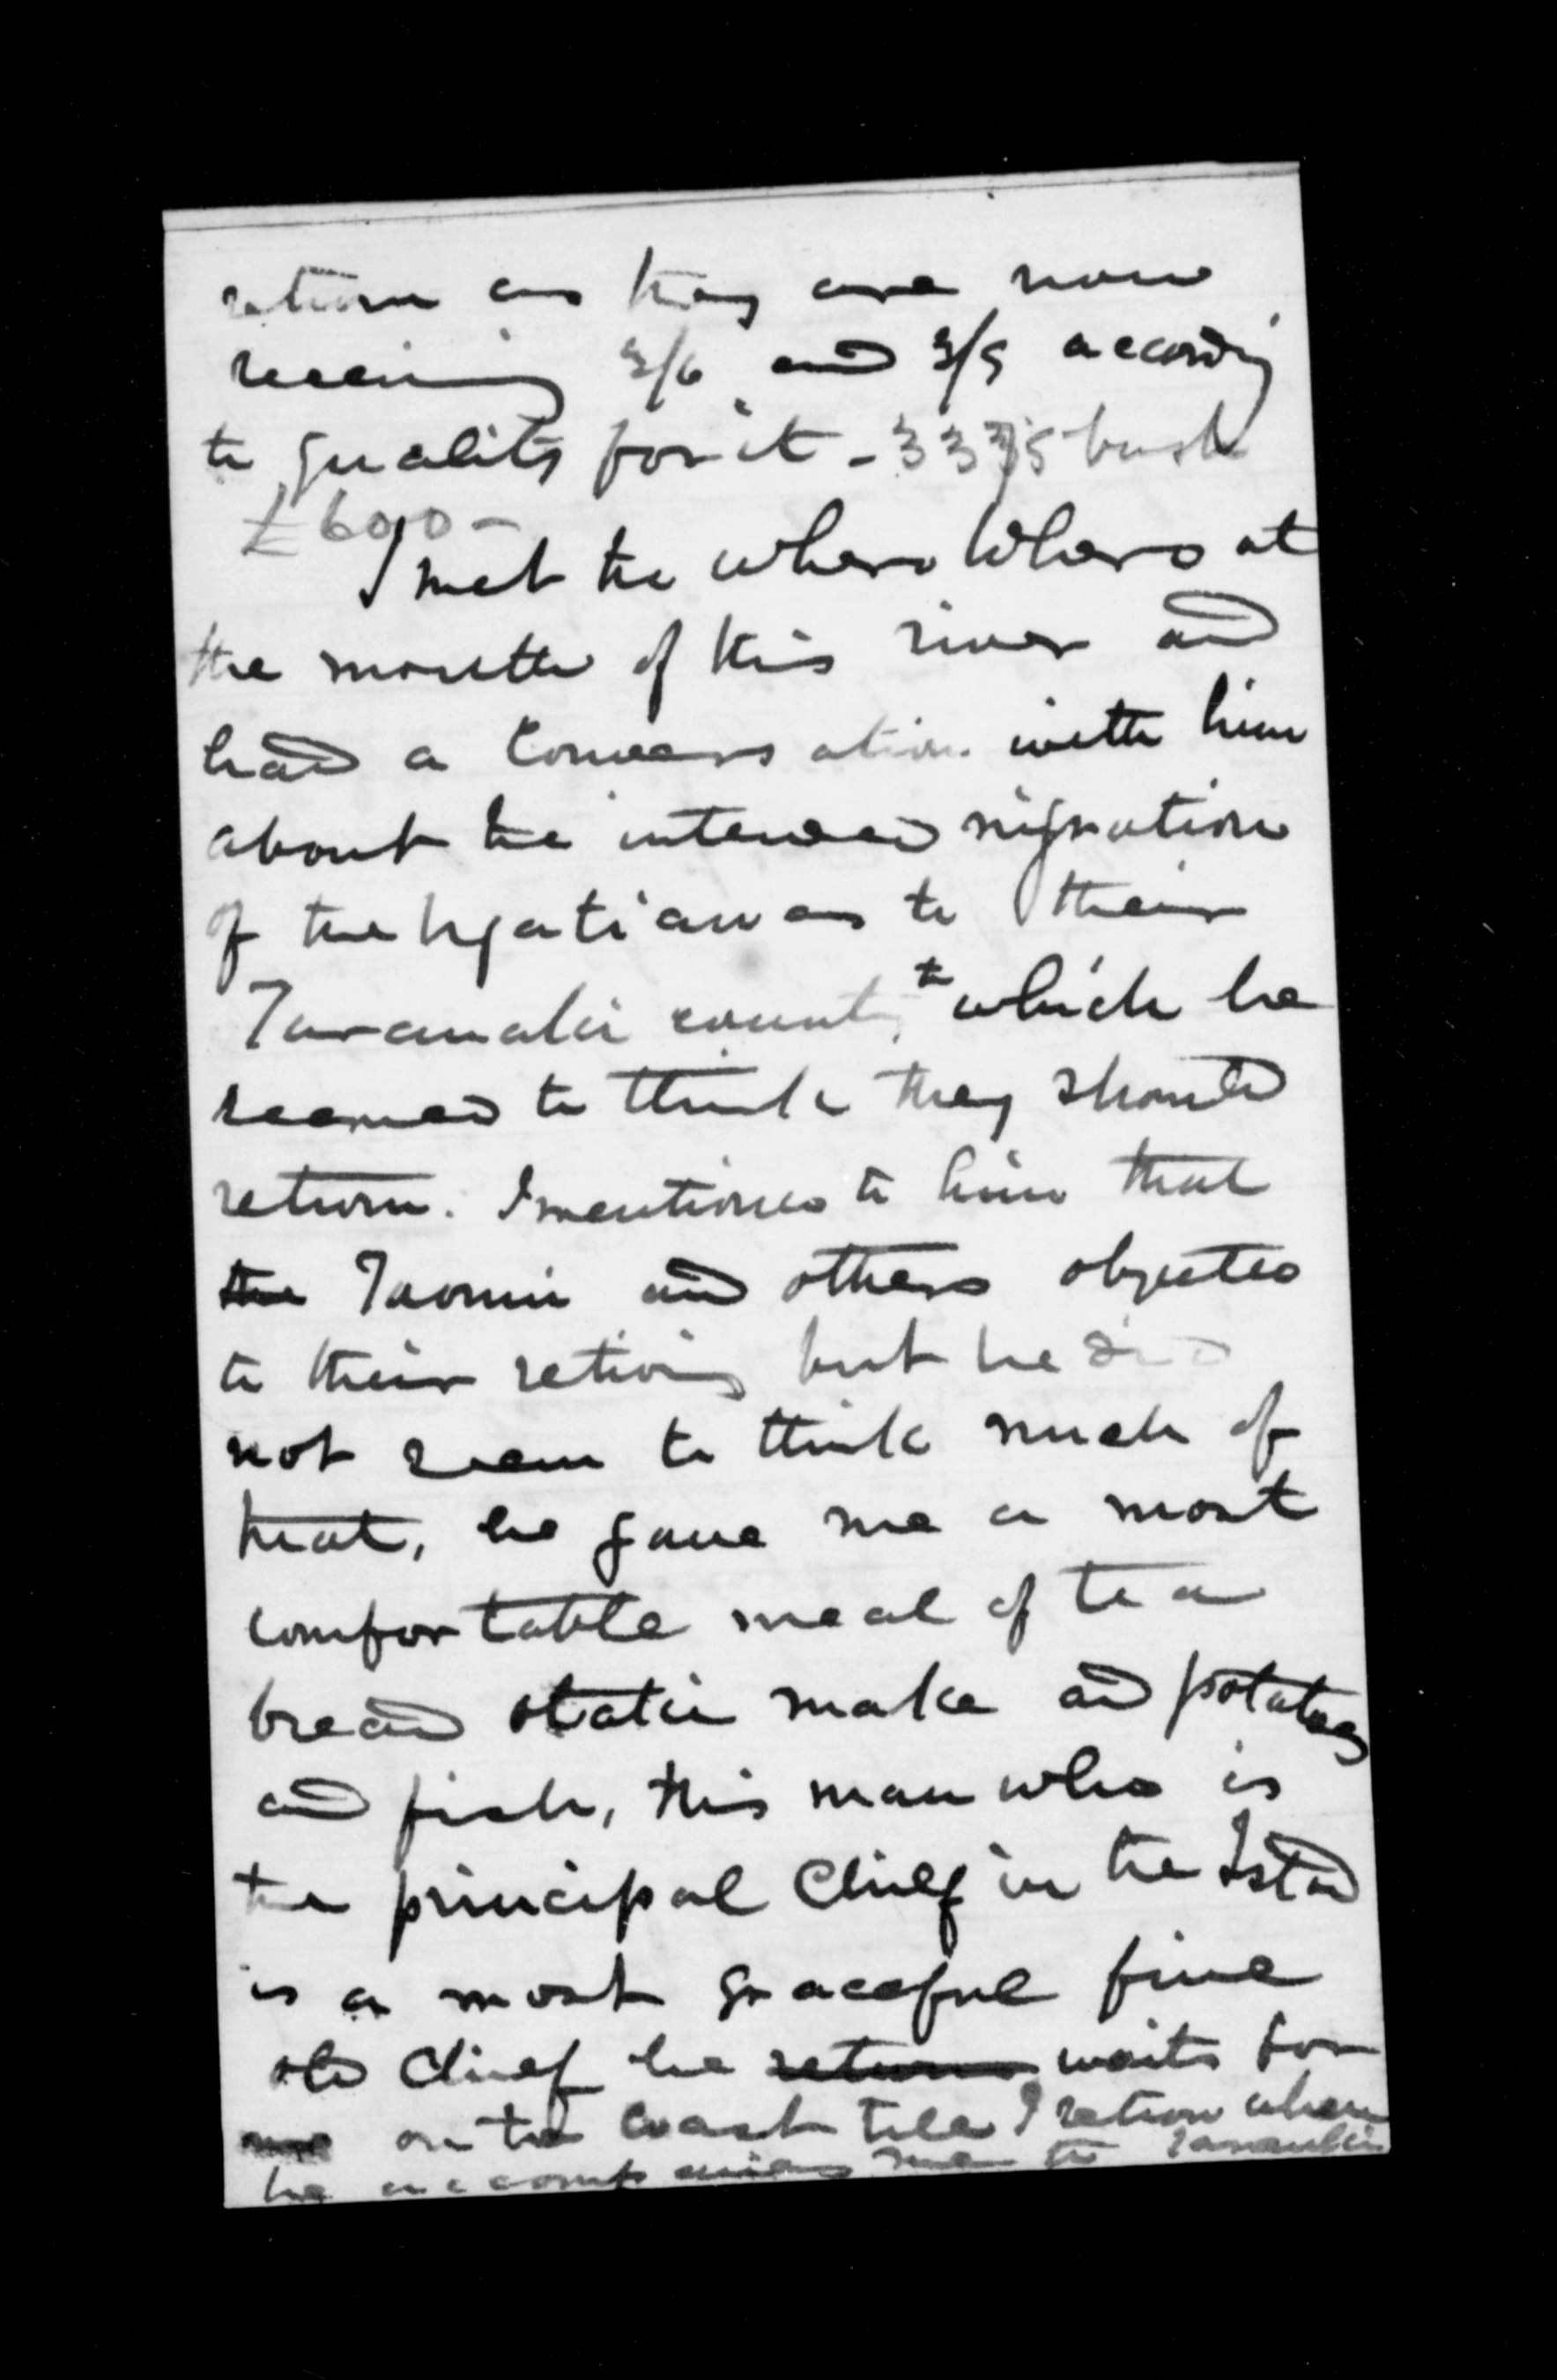 return as they are now
receiving 3/6 and 3/9 according
to quality for it - 3375 bush
£600 -
I met te whero whero at
the mouth of this river and
had a conversation with him
about the intended migration
of the Ngatiawas to their
Taranaki county, to which he
seemed to think they should
return. I mentioned to him that
the Taonui and others objected
to their retiring but he did
not seem to think much of
that, he gave me a most
comfortable meal of tea
bread make and potatoes
and fish, this man who is
the principal Chief in the Island
is a most graceful fine
old Chief he returns waits for
me on the coast till I return when
he accompanies me to Taranaki